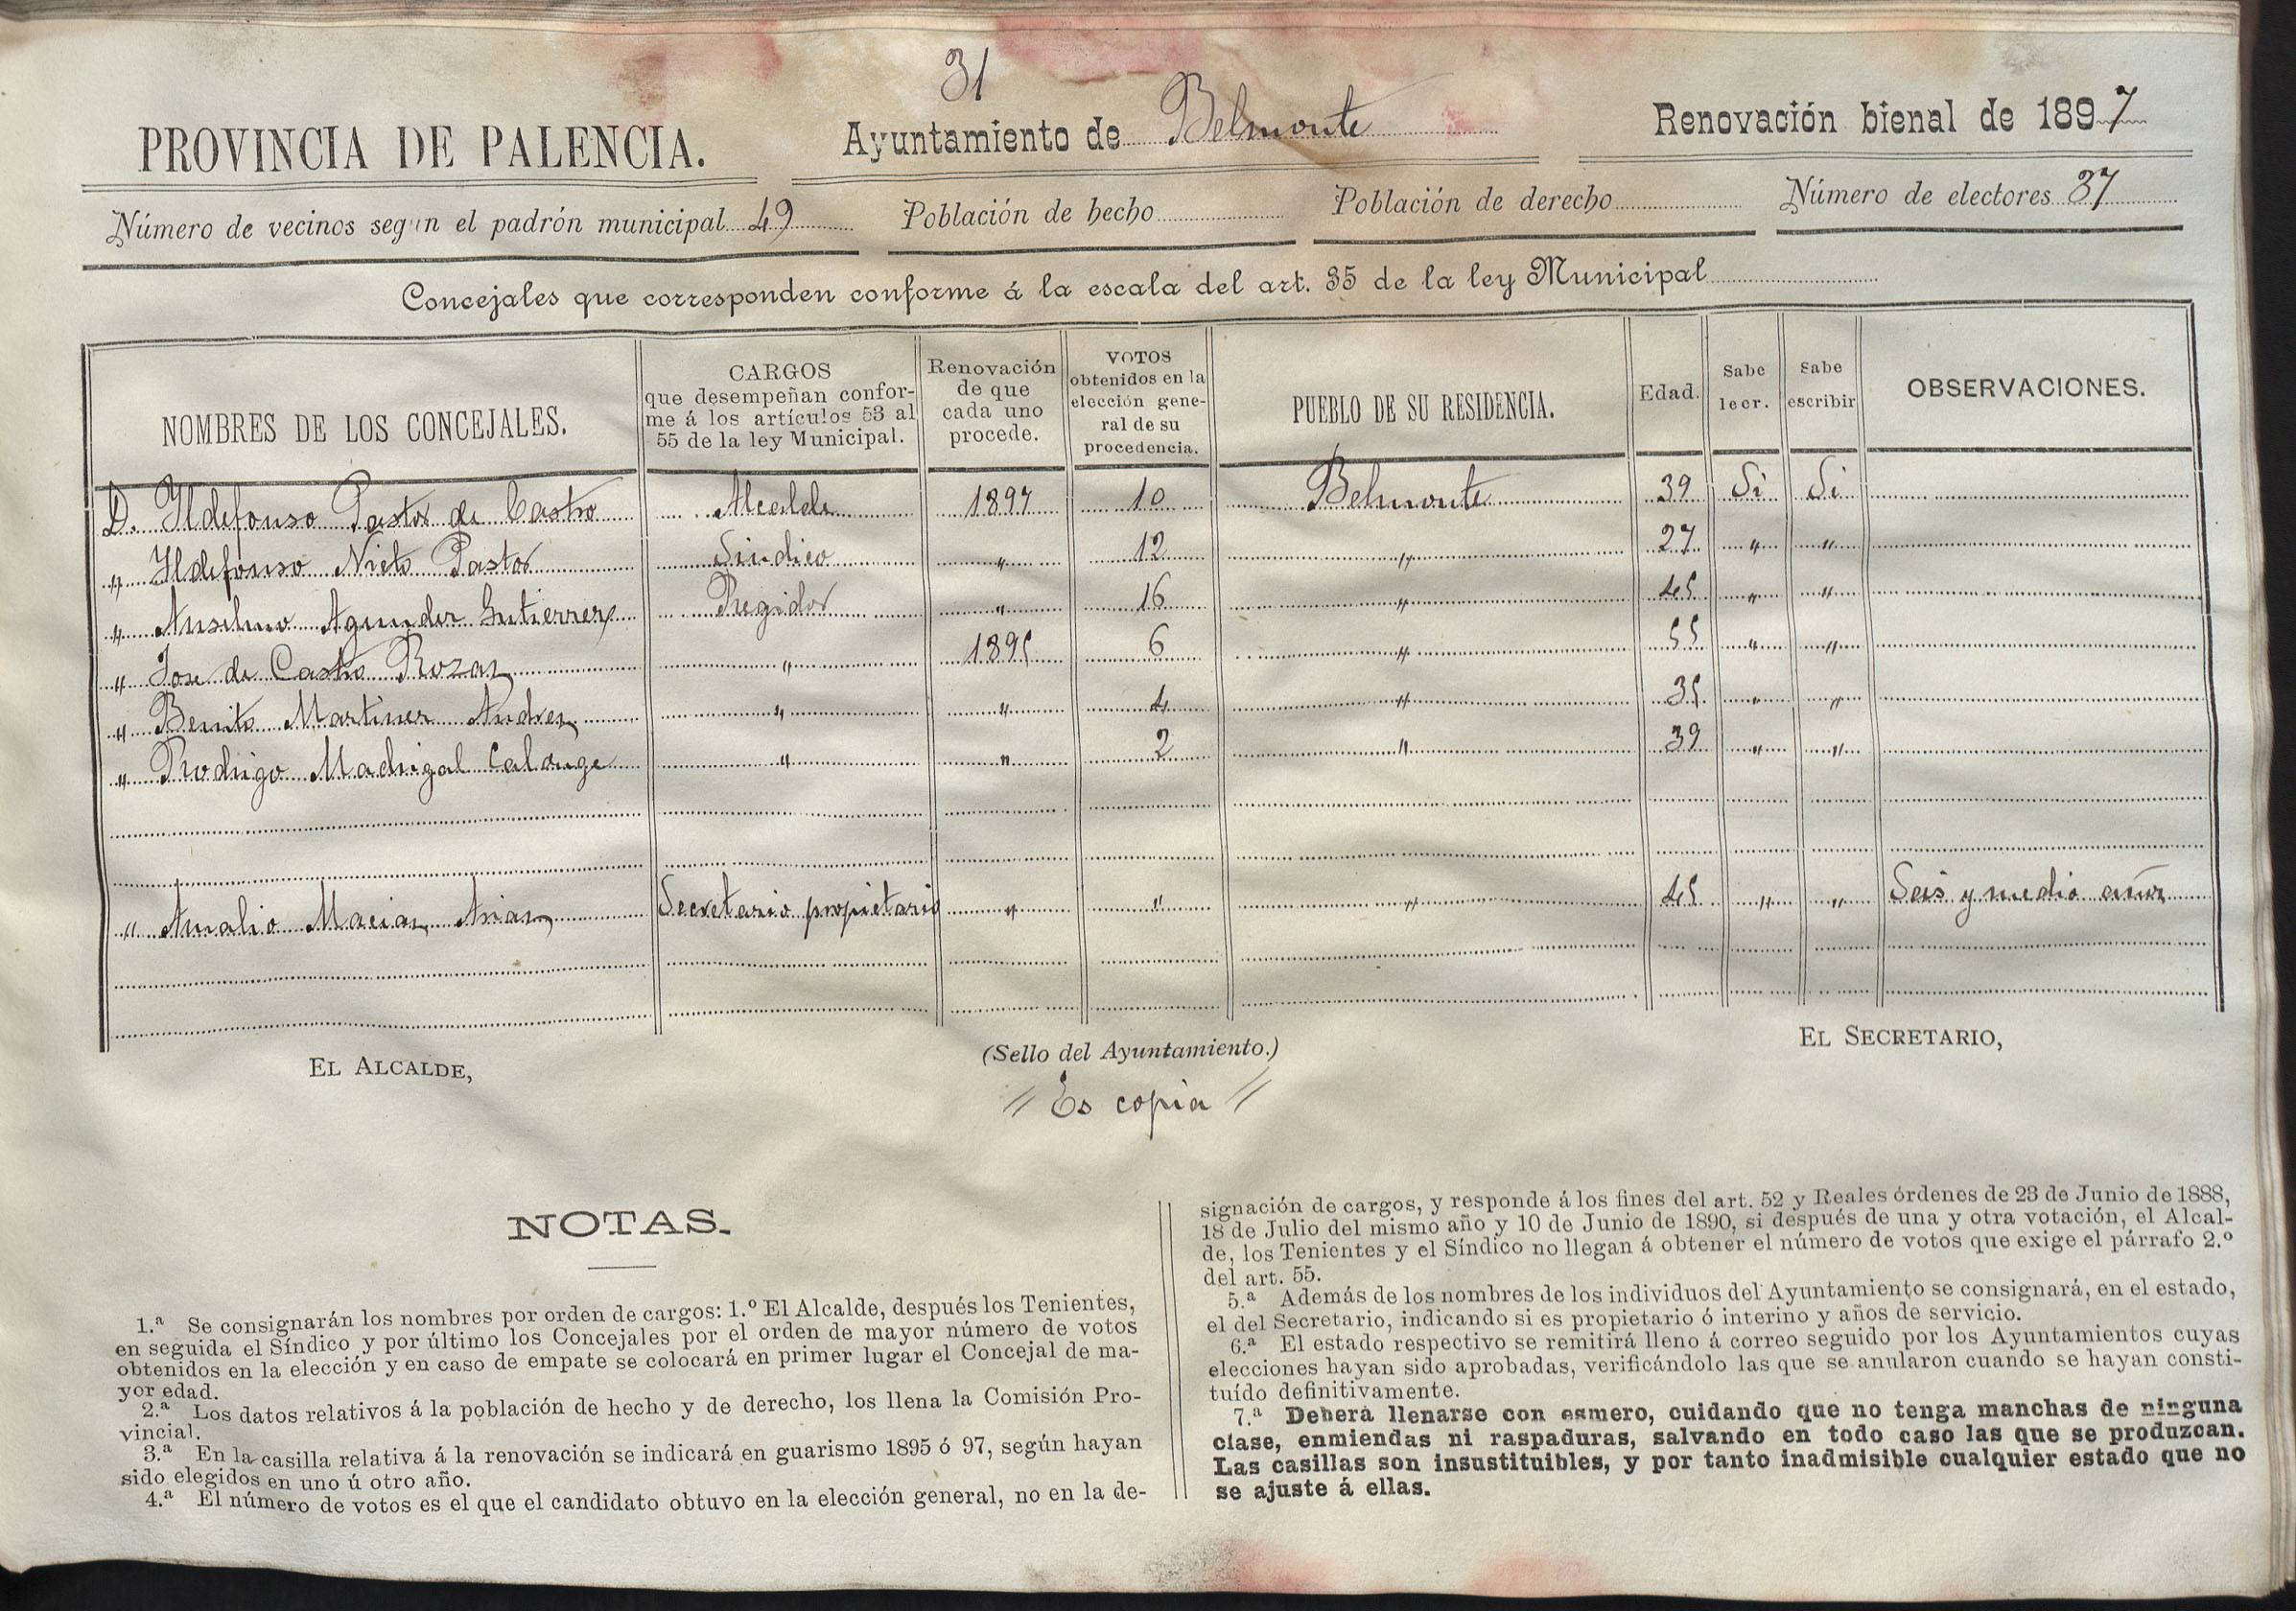 31
PROVINCIA DE PALENCIA.
Ayuntamiento de Belmonte
Renovación bienal de 1897
Número de vecinos segun el padrón municipal 49
Población de hecho
Población de derecho
Número de electores 37
Concejales que corresponden conforme á la escala del art. 35 de la ley Municipal
NOMBRES DE LOS CONCEJALES.
CARGOS
que desempeñan confor-
me á los artículos 53 al
55 de la ley Municipal.
Renovación
de que
cada uno
procede.
VOTOS
obtenidos en la
elección gene-
ral de su
procedencia.
PUEBLO DE SU RESIDENCIA.
Edad.
Sabe
leer.
Sabe
escribir
OBSERVACIONES.
D. Ildefonso Pastor de Castro Alcalde 1897 10 Belmonte 39 Si Si
" Ildefonso Nieto Pastor Sindico " 12 " 27 " "
" Anselmo Agundez Gutierrez Regidor " 16 " 45 " "
" Jose de Castro Rozas " 1895 6 " 55 " "
" Benito Martinez Andres " " 4 " 35 " "
" Rodrigo Madrigal Calonge " " 2 " 39 " "
" Amalio Macias Arias Secretario propietario " " " 45 " " Seis y medio años
EL ALCALDE,
(Sello del Ayuntamiento.)
EL SECRETARIO,
// Es copia //
NOTAS.
1.ª Se consignarán los nombres por orden de cargos: 1.º El Alcalde, después los Tenientes,
en seguida el Síndico y por último los Concejales por el orden de mayor número de votos
obtenidos en la elección y en caso de empate se colocará en primer lugar el Concejal de ma-
yor edad.
2.ª Los datos relativos á la población de hecho y de derecho, los llena la Comisión Pro-
vincial.
3.ª En la casilla relativa á la renovación se indicará en guarismo 1895 ó 97, según hayan
sido elegidos en uno ú otro año.
4.ª El número de votos es el que el candidato obtuvo en la elección general, no en la de-
signación de cargos, y responde á los fines del art. 52 y Reales órdenes de 23 de Junio de 1888,
18 de Julio del mismo año y 10 de Junio de 1890, si después de una y otra votación, el Alcal-
de, los Tenientes y el Síndico no llegan á obtener el número de votos que exige el párrafo 2.º
del art. 55.
5.ª Además de los nombres de los individuos del Ayuntamiento se consignará, en el estado,
el del Secretario, indicando si es propietario ó interino y años de servicio.
6.ª El estado respectivo se remitirá lleno á correo seguido por los Ayuntamientos cuyas
elecciones hayan sido aprobadas, verificándolo las que se anularon cuando se hayan consti-
tuído definitivamente.
7.ª Deberá llenarse con esmero, cuidando que no tenga manchas de ninguna
clase, enmiendas ni raspaduras, salvando en todo caso las que se produzcan.
Las casillas son insustituibles, y por tanto inadmisible cualquier estado que no
se ajuste á ellas.